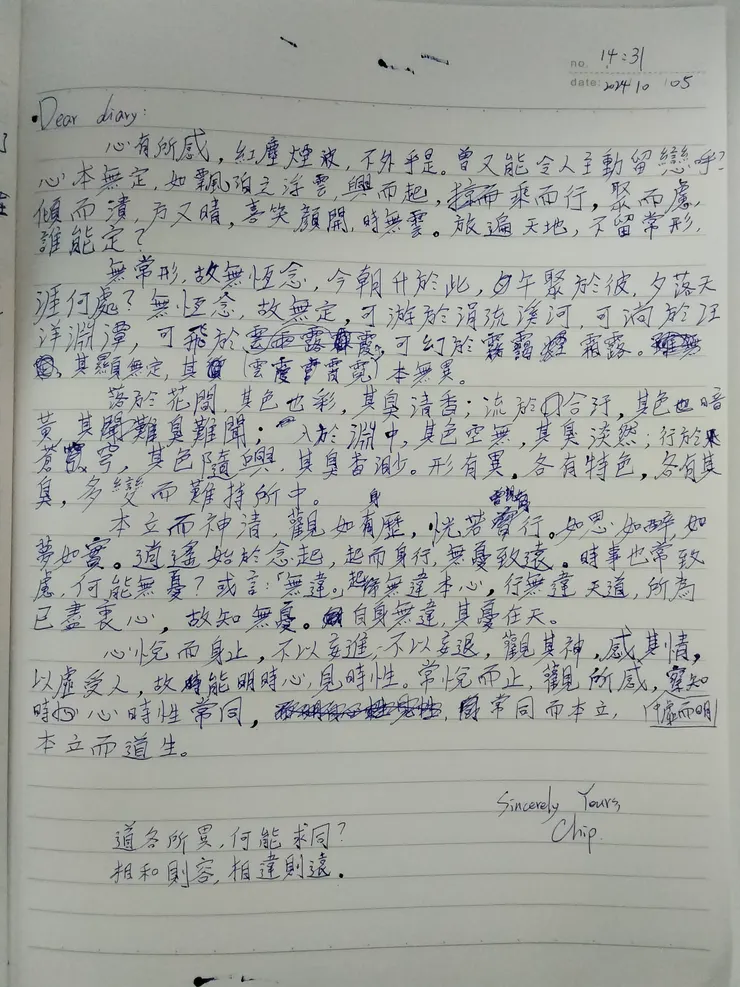 no. 14:31
date: 2024 10 / 05
Dear diary:
心有所感，紅塵煙波，不外乎是。曾又能令人主動留戀乎？
心本無定，如飄泊之浮雲，興而起，掠而乘而行，聚而慮，
傾而潰，方又晴，喜笑顏開，時無雲。旅遍天地，不留常形，
誰能定？
無常形，故無恆念，今朝升於此，午聚於彼，夕落天
涯何處？無恆念，故無定，可游於涓流溪河，可洄於汪
洋淵潭，可飛於，可幻於霧靄煙霜露。
其顯無定，其（雲霞雪霄霓）本無異。
落於花間，其色也彩，其臭清香；流於合汙，其色也暗
黃，其聞難臭難聞；入於淵中，其色空無，其臭淡然；行於
蒼穹，其色隨興，其臭杳渺。形有異，各有特色，各有其
臭，多變而難持所中。
本立而神清，觀如身有歷，恍若行。如思如醉，如
夢如實。逍遙始於念起，起而身行，無憂致遠。時事也常致
慮，何能無憂？或言：「無違。」起無違本心，行無違天道，所為
已盡衷心，故知無憂。自身無違，其憂在天。
心悅而身止，不以妄進，不以妄退，觀其神，感其情，
以虛受人，故能明時心，見時性。常悅而止，觀所感，察知
時心時性常同，常同而本立，中虛而明
本立而道生。
Sincerely Yours,
Chip.
道各所異，何能求同？
相和則容，相違則遠。